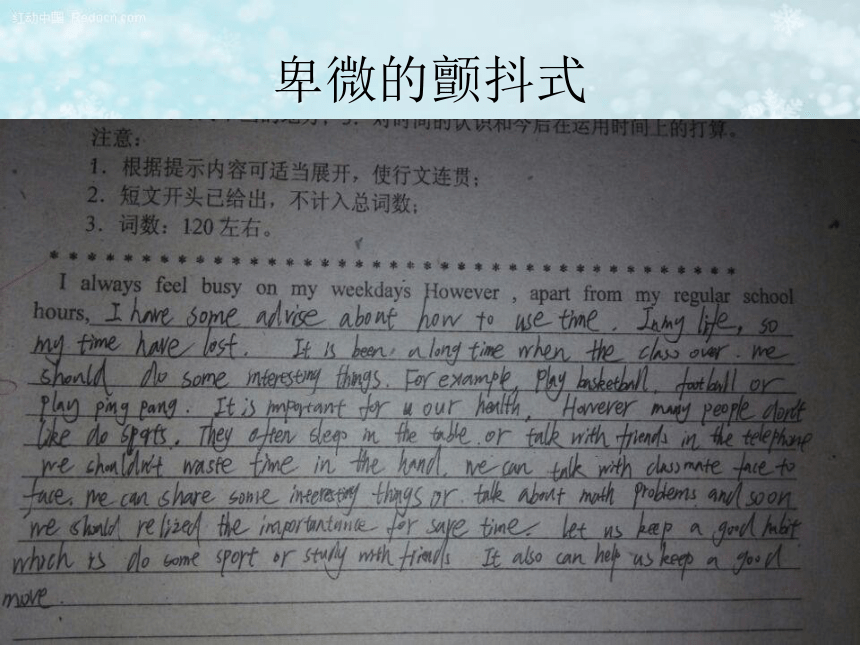 红动中国 Redocn.com
卑微的颤抖式
对时间的认识和今后在运用时间上的打算。
注意：
1. 根据提示内容可适当展开，使行文连贯；
2. 短文开头已给出，不计入总词数；
3. 词数：120 左右。
* * * * * * * * * * * * * * * * * * * * * * * * * * * * * * * * * * * * *
I always feel busy on my weekdays However , apart from my regular school
hours, I have some advise about how to use time. In my life, so
my time have lost. It is been a long time when the class over. we
should do some interesting things. For example, Play basketball, football or
play ping pang. It is important for u our health, However many people don't
like do sports. They often sleep in the table. or talk with friends in the telephone
we shouldn't waste time in the hand. we can talk with classmate face to
face. we can share some interesting things or talk about math problems and so on
we should relized the importantance for save time. let us keep a good habit
which is do some sport or study with friends It also can help us keep a good
move.